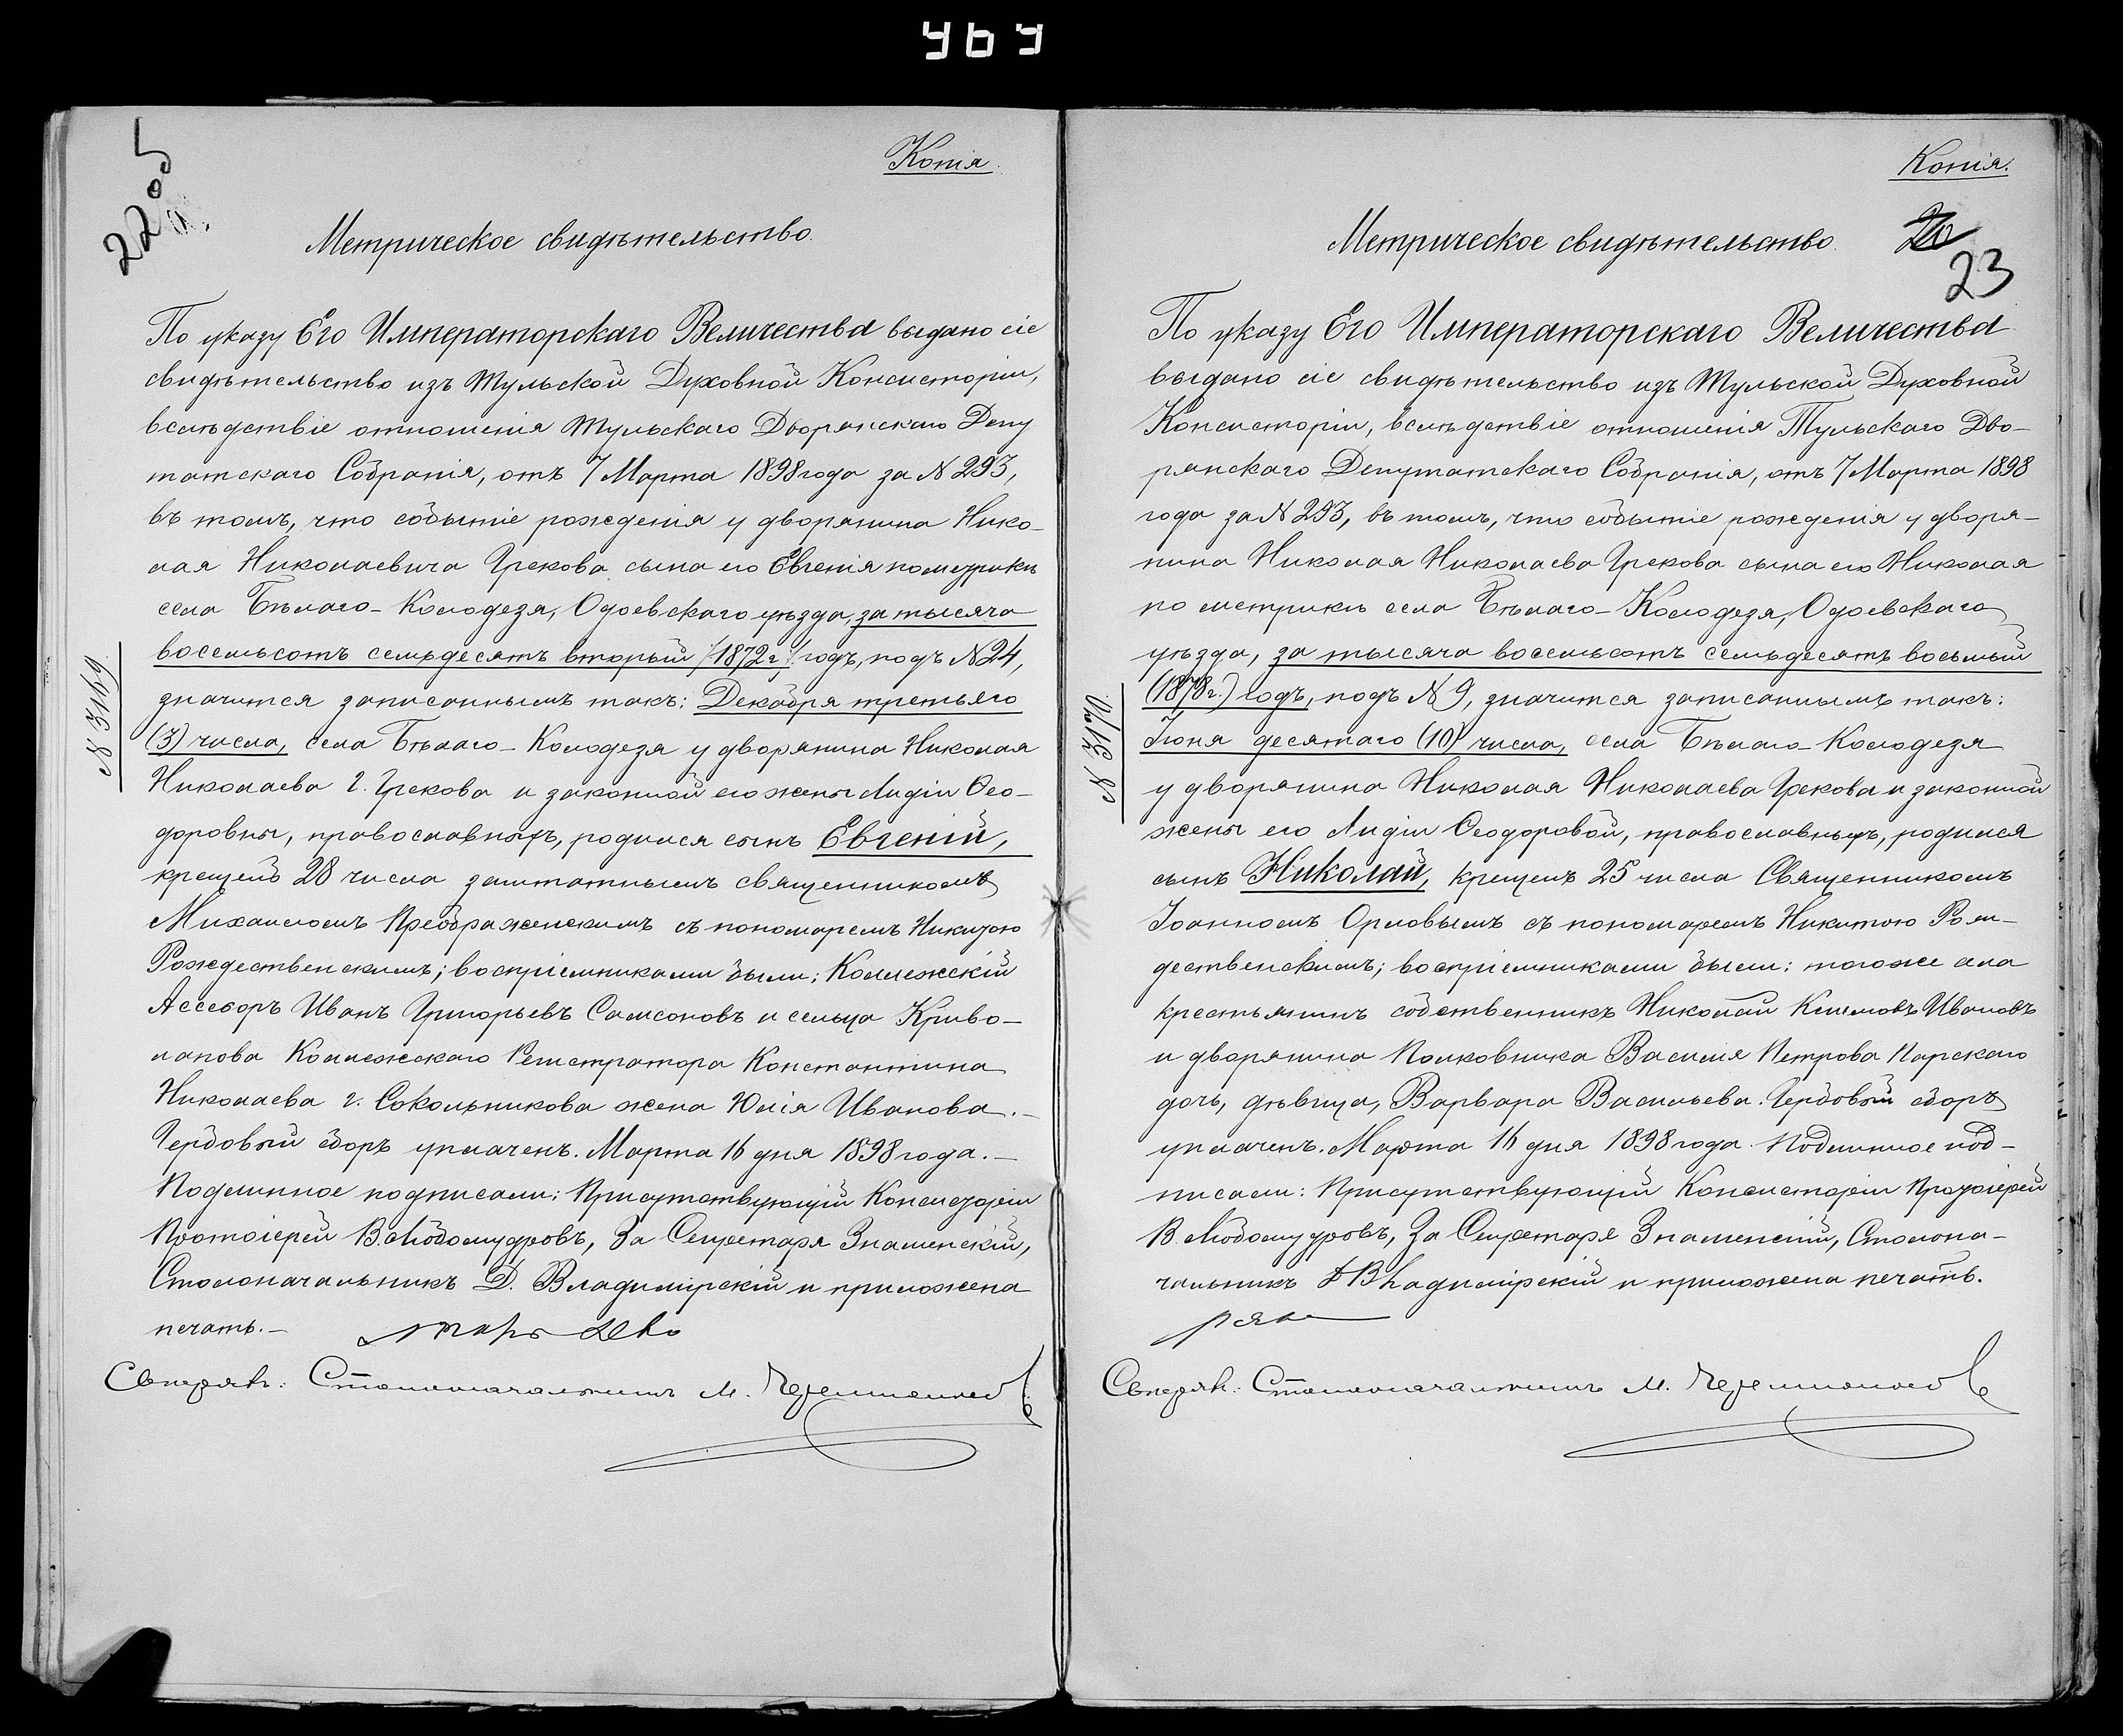 Копія.
Метрическое свидѣтельство.
По указу Его Императорскаго Величества выдано сіе
свидѣтельство изъ Тульской Духовной Консисторіи,
вслѣдствіе отношенія Тульскаго Дворянскаго Депу
татскаго Собранія, отъ 7 Марта 1898 года за № 293,
въ томъ, что событіе рожденія у дворянина Нико-
лая Николаевича Грекова сына его Евгенія по метрикѣ
села Бѣлаго-Колодезя, Одоевскаго уѣзда, за тысяча
восемьсотъ семьдесятъ вторый (1872 г.) годъ, подъ № 24,
значится записаннымъ такъ: Декабря третьяго
(3) числа, села Бѣлаго-Колодезя у дворянина Николая
Николаева г. Грекова и законной его жены Лидіи Ѳео-
доровны, православныхъ, родился сынъ Евгеній,
крещенъ 28 числа заштатнымъ священникомъ
Михаиломъ Преображенскимъ съ пономаремъ Никитою
Рождественскимъ; воспріемниками были: Коллежскій
Ассесоръ Иванъ Григорьевъ Самсоновъ и сельца Криво-
лапова Коллежскаго Регистратора Константина
Николаева г. Сокольникова жена Юлія Иванова.-
Гербовый сборъ уплаченъ. Марта 16 дня 1898 года.-
Подлинное подписали: Присутствующій Консисторіи
Протоіерей В. Любомудровъ, За Секретаря Знаменскій,
Столоначальникъ Д. Владимірскій и приложена
печать.-
Столоначальникъ М.
№ 3169
22
Копія.
Метрическое свидѣтельство.
20
23
По указу Его Императорскаго Величества
выдано сіе свидѣтельство изъ Тульской Духовной
Консисторіи, вслѣдствіе отношенія Тульскаго Дво-
рянскаго Депутатскаго Собранія, отъ 7 Марта 1898
года за № 293, въ томъ, что событіе рожденія у дворя-
нина Николая Николаева Грекова сына его Николая
по метрикѣ села Бѣлаго-Колодезя, Одоевскаго
уѣзда, за тысяча восемьсотъ семьдесятъ восьмый
(1878 г.) годъ, подъ № 9, значится записаннымъ такъ:
Іюня десятаго (10) числа, села Бѣлаго-Колодезя
у дворянина Николая Николаева Грекова и законной
жены его Лидіи Ѳеодоровой, православныхъ, родился
сынъ Николай, крещенъ 25 числа Священникомъ
Іоанномъ Орловымъ съ пономаремъ Никитою Рож-
дественскимъ; воспріемниками были: тогоже села
крестьянинъ собственникъ Николай Ивановъ
и дворянина Полковника Василія Петрова Нарскаго
дочь, дѣвица, Варвара Васильева. Гербовый сборъ
уплаченъ. Марта 16 дня 1898 года. Подлинное под-
писали: Присутствующій Консисторіи Протоіерей
В. Любомудровъ, За Секретаря Знаменскій, Столона-
чальникъ Д Владимірскій и приложена печать.
Столоначальникъ М.